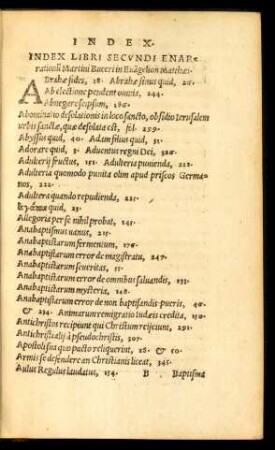 INDEX.
INDEX LIBRI SECVNDI ENAR-
rationũ Martini Buceri in Euãgelion Matthæi.
ABrahæ fides, 28. Abrahæ sinus quid, 26.
Ab electione pendent omnia, 244.
Abnegare seipsum, 186.
Abominatio desolationis in loco sancto, obsidio Ierusalem
urbis sanctæ, quæ desolata est, fol. 259.
Abyssus quid, 40. Adam filius quid, 31.
Adorare quid, 3. Aduentus regni Dei, 300.
Adulterij fructus, 151. Adulteria punienda, 222.
Adulteria quomodo punita olim apud priscos Germa-
nos, 222.
Adultera quando repudienda, 151.
quid, 25.
Allegoria per se nihil probat, 145.
Anabaptismus uanus, 21.
Anabaptistarum fermentum, 176.
Anabaptistarum error de magistratu, 247.
Anabaptistarum seueritas, 11.
Anabaptistarum error de omnibus saluandis, 111.
Anabaptistarum mysteria, 148.
Anabaptistarum error de non baptisandis pueris, 40.
& 234. Animarum remigratio iudæis credita, 110.
Antichristos recipiunt qui Christum reijciunt, 291.
Antichristi alij à pseudochristis, 307.
Apostoli sua quo pacto reliquerint, 28. & 50.
Armis se defendere an Christianis liceat, 345.
Aulus Regulus laudatus, 154. B Baptisma